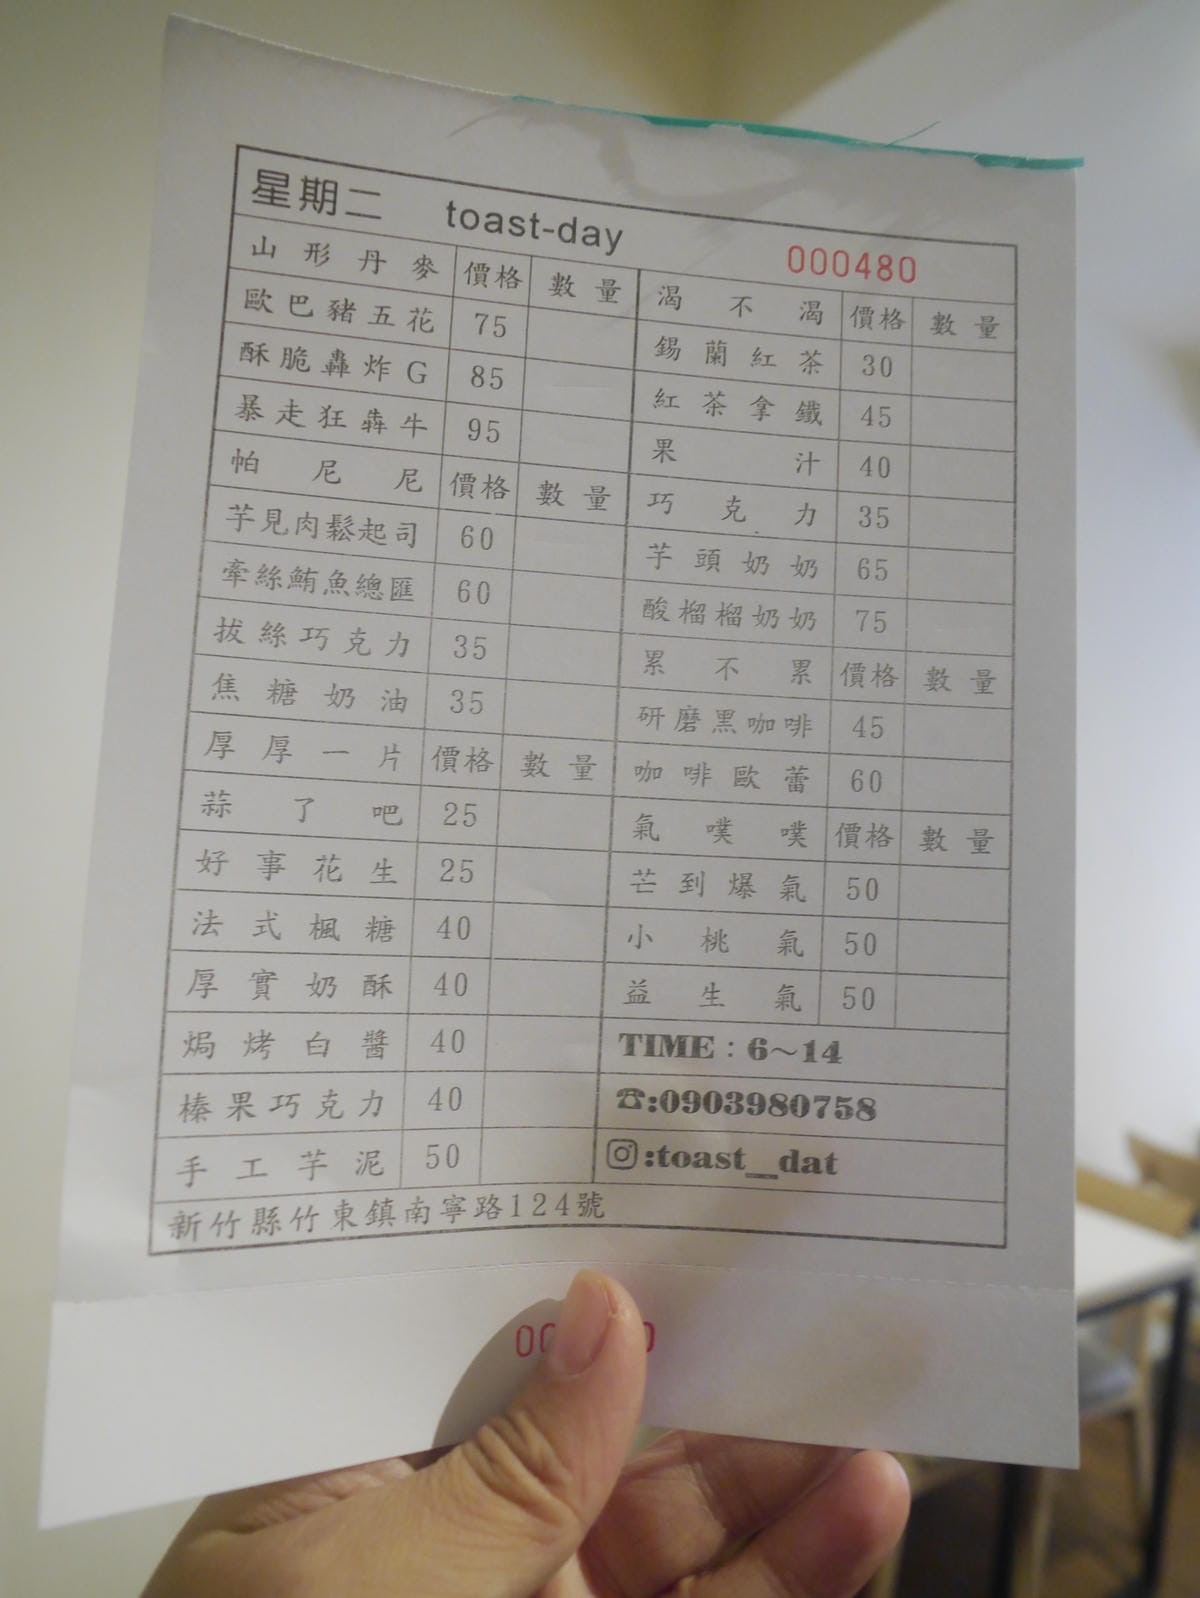 星期二 toast-day 000480
山形丹麥 價格 數量
歐巴豬五花 75
酥脆轟炸G 85
暴走狂犇牛 95
帕尼尼 價格 數量
芋見肉鬆起司 60
牽絲鮪魚總匯 60
拔絲巧克力 35
焦糖奶油 35
厚厚一片 價格 數量
蒜了吧 25
好事花生 25
法式楓糖 40
厚實奶酥 40
焗烤白醬 40
榛果巧克力 40
手工芋泥 50
渴不渴 價格 數量
錫蘭紅茶 30
紅茶拿鐵 45
果汁 40
巧克力 35
芋頭奶奶 65
酸榴榴奶奶 75
累不累 價格 數量
研磨黑咖啡 45
咖啡歐蕾 60
氣噗噗 價格 數量
芒到爆氣 50
小桃氣 50
益生氣 50
TIME：6～14
☎:0903980758
:toast__dat
新竹縣竹東鎮南寧路124號